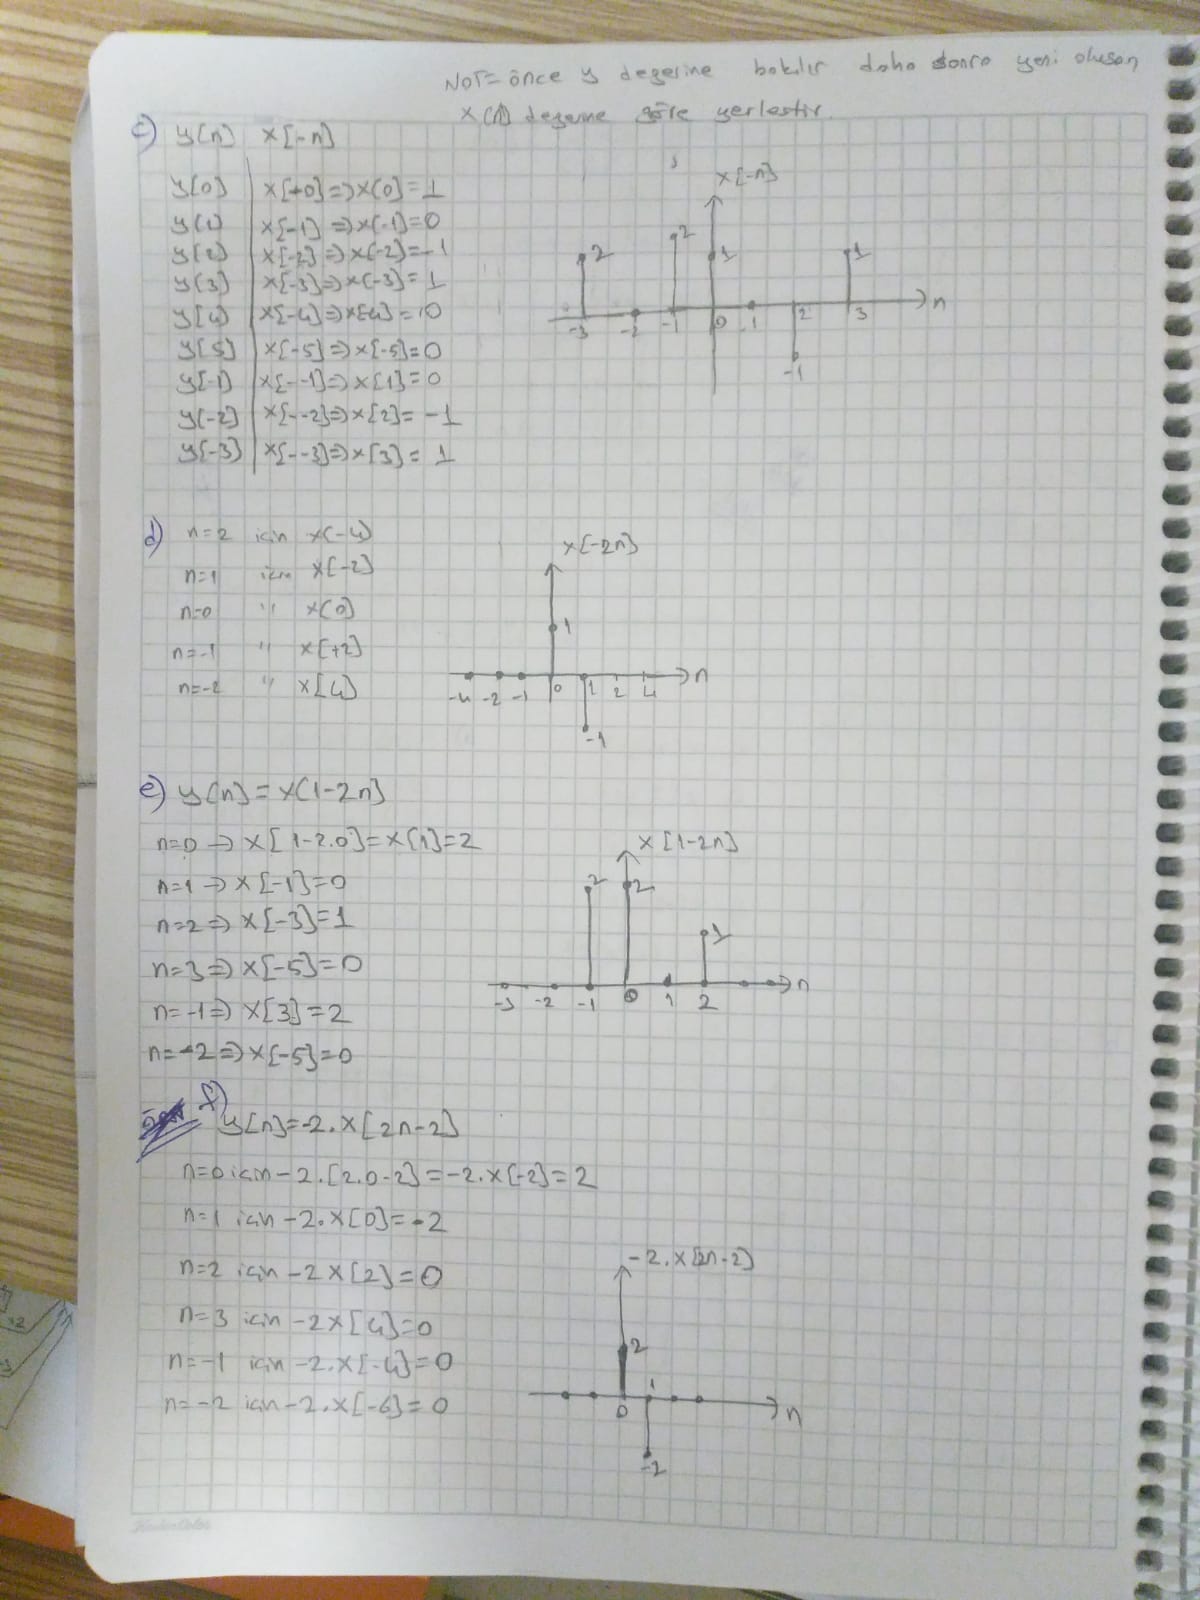 NOT= önce y degerine bakılır daha sonra yeni olusan
x(n) degerine göre yerlestir.
c) y[n] x[-n]
y[0] x[+0]=>x[0]=1
y(1) x[-1]=>x(-1)=0
y[2] x[-2]=>x(-2)=-1
y(3) x[-3]=>x(-3)=1
y[4] x[-4]=>x[-4]=0
y[5] x[-5]=>x[-5]=0
y[-1] x[--1]=>x[1]=0
y(-2] x[--2]=>x[2]=-1
y[-3] x[--3]=>x[3]=1
x[-n]
2 2 1 1
-3 -2 -1 0 1 2 3 n
-1
d) n=2 için x(-4)
n=1 için x[-2]
n=0 " x[0]
n=-1 " x[+2]
n=-2 " x[4]
x[-2n]
1
-4 -2 -1 0 1 2 4 n
-1
e) y[n]=x[1-2n]
n=0 -> x[1-2.0]=x[1]=2
n=1 -> x[-1]=0
n=2=> x[-3]=1
n=3=> x[-5]=0
n=-1=> x[3]=2
n=-2=> x[-5]=0
x[1-2n]
2 2 1
-3 -2 -1 0 1 2 n
f)
y[n]=-2.x[2n-2]
n=0 için -2.[2.0-2]=-2.x[-2]=2
n=1 için -2.x[0]=-2
n=2 için -2x[2]=0
n=3 için -2x[4]=0
n=-1 için -2.x[-4]=0
n=-2 için -2.x[-6]=0
-2.x[2n-2]
2
0 1 n
-2